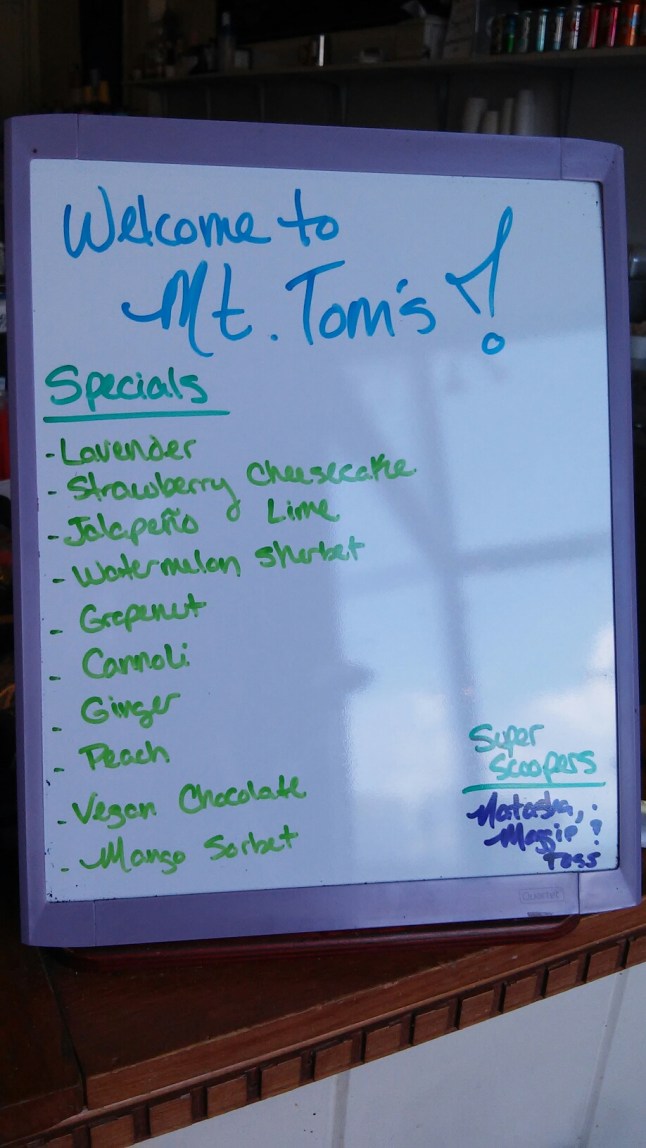 Welcome to
Mt. Tom's!
Specials
- Lavender
- Strawberry Cheesecake
- Jalapeño Lime
- Watermelon Sherbet
- Grapenut
- Cannoli
- Ginger
- Peach
- Vegan Chocolate
- Mango Sorbet
Super
Scoopers
Natasha,
Maggie